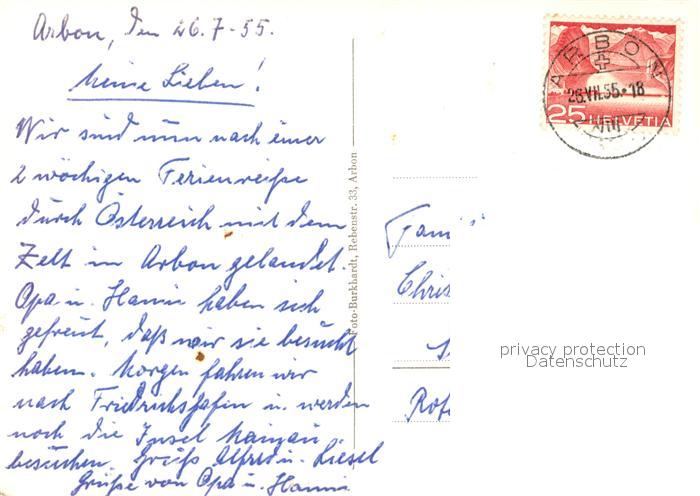 Arbon, den 26.7-55.
Meine Lieben!
Wir sind nun nach einer
2 wöchigen Ferienreise
durch Österreich mit dem
Zelt in Arbon gelandet.
Opa u. Hanni haben sich
gefreut, daß wir sie besucht
haben. Morgen fahren wir
nach Friedrichshafen u. werden
noch die Insel Mainau
besuchen. Gruß Alfred u. Liesel
Grüße von Opa u. Hanni
Foto-Burkhardt, Rebenstr. 33, Arbon
ARBON
26.VII.55.-18
25 HELVETIA
Fami
Chris
Rot
privacy protection
Datenschutz